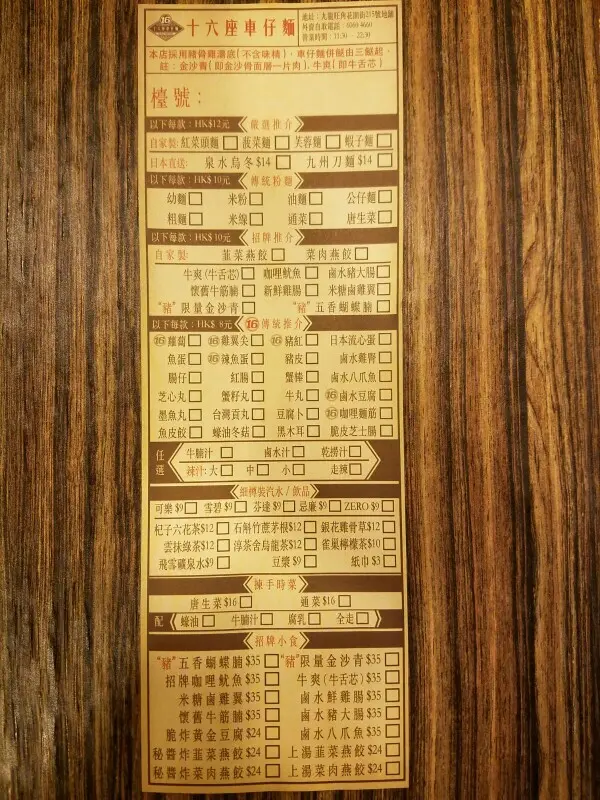 16
十六座車仔麵
地址：九龍旺角花園街215號地舖
外賣自取電話：
營業時間：11:30 - 22:30
本店採用豬骨雞湯底(不含味精)，車仔麵併餸由三餸起，
註：金沙青(即金沙骨面層一片肉)，牛爽(即牛舌芯)
檯號：
以下每款：HK$12元 嚴選推介
自家製: 紅菜頭麵 菠菜麵 芙蓉麵 蝦子麵
日本直送: 泉水烏冬$14 九州刀麵$14
以下每款：HK$10元 傳統粉麵
幼麵 米粉 油麵 公仔麵
粗麵 米線 通菜 唐生菜
以下每款：HK$10元 招牌推介
自家製: 韮菜燕餃 菜肉燕餃
牛爽(牛舌芯) 咖喱魷魚 鹵水豬大腸
懷舊牛筋腩 新鮮雞腸 米糖鹵雞翼
"豬"限量金沙青 "豬"五香蝴蝶腩
以下每款：HK$ 8元 16 傳統推介
16蘿蔔 16雞翼尖 16豬紅 日本流心蛋
魚蛋 16辣魚蛋 豬皮 鹵水雞腎
腸仔 紅腸 蟹棒 鹵水八爪魚
芝心丸 蟹籽丸 牛丸 16鹵水豆腐
墨魚丸 台灣貢丸 豆腐卜 16咖喱麵筋
魚皮餃 蠔油冬菇 黑木耳 脆皮芝士腸
任選
牛腩汁 鹵水汁 乾撈汁
辣汁: 大 中 小 走辣
細樽裝汽水/飲品
可樂$9 雪碧$9 芬達$9 忌廉$9 ZERO$9
杞子六花茶$12 石斛竹蔗茅根$12 銀花雞骨草$12
雲抹綠茶$12 淳茶舍烏龍茶$12 雀巢檸檬茶$10
飛雪礦泉水$9 豆漿$9 紙巾$3
揀手時菜
唐生菜$16 通菜$16
配 蠔油 牛腩汁 腐乳 全走
招牌小食
"豬"五香蝴蝶腩$35 "豬"限量金沙青$35
招牌咖喱魷魚$35 牛爽(牛舌芯)$35
米糖鹵雞翼$35 鹵水鮮雞腸$35
懷舊牛筋腩$35 鹵水豬大腸$35
脆炸黃金豆腐$24 鹵水八爪魚$35
秘醬炸韮菜燕餃$24 上湯韮菜燕餃$24
秘醬炸菜肉燕餃$24 上湯菜肉燕餃$24